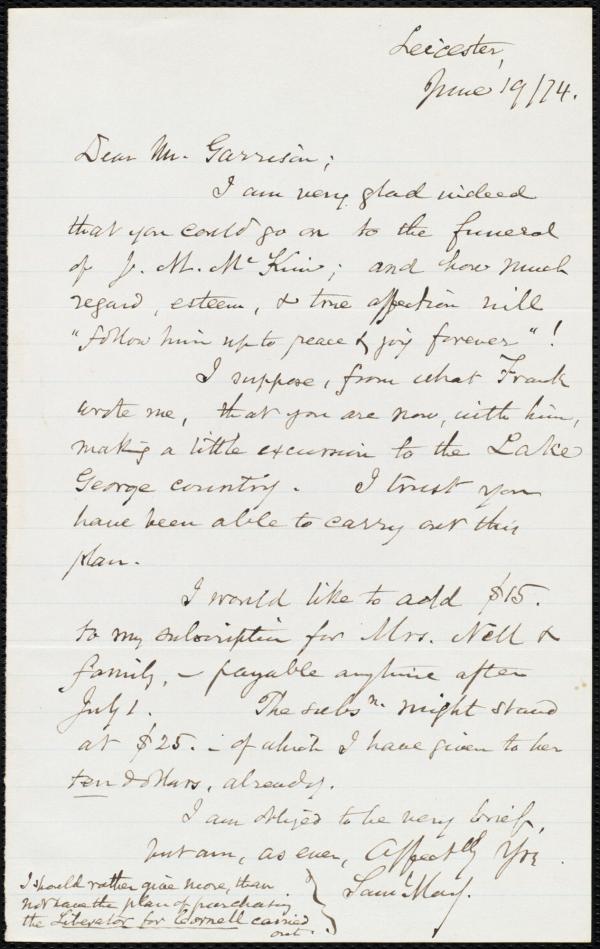 Leicester,
June 19/74.
Dear Mr. Garrison;
I am very glad indeed
that you could go on to the funeral
of J. M. McKim; and how much
regard, esteem, & true affection will
"follow him up to peace & joy forever"!
I suppose, from what Frank
wrote me, that you are now, with him,
making a little excursion to the Lake
George country. I trust you
have been able to carry out this
plan.
I would like to add $15.
to my subscription for Mrs. Nell &
family, – payable anytime after
July 1. The subsn. might stand
at $25. – of which I have given to her
ten dollars, already.
I am obliged to be very brief,
but am, as ever, Affectly Yrs.
Saml May.
I should rather give more, than
not have the plan of purchasing
the Liberator for Cornell carried
out.